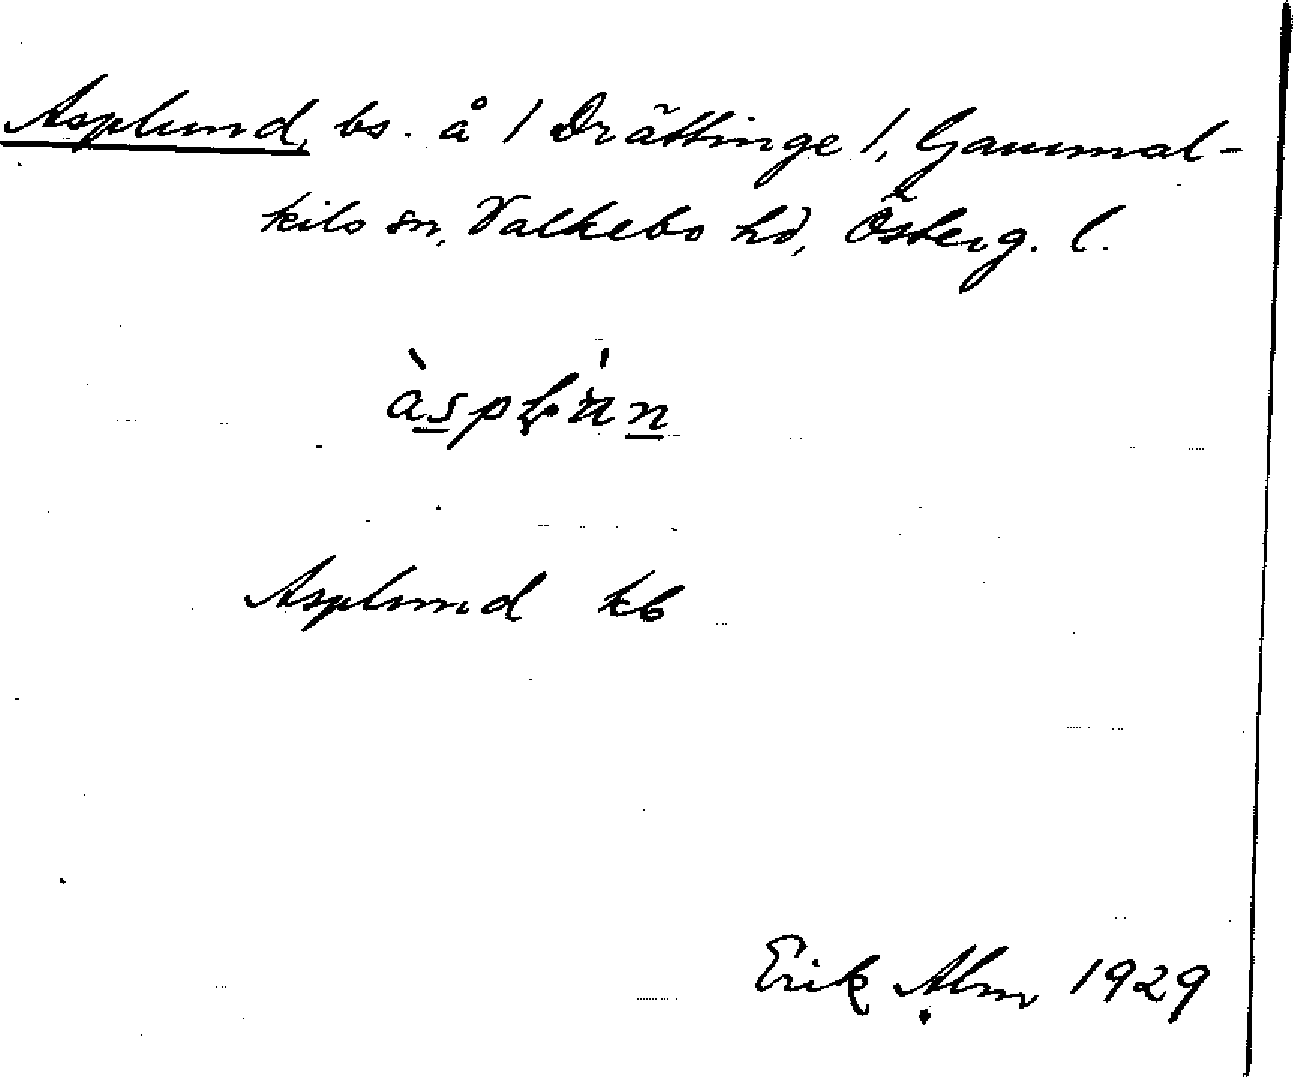 Asplund, bs. å / Drättinge /, Gammal-
kils sn, Valkebo hd, Österg. l.
Asplund kb
Erik Alm 1929